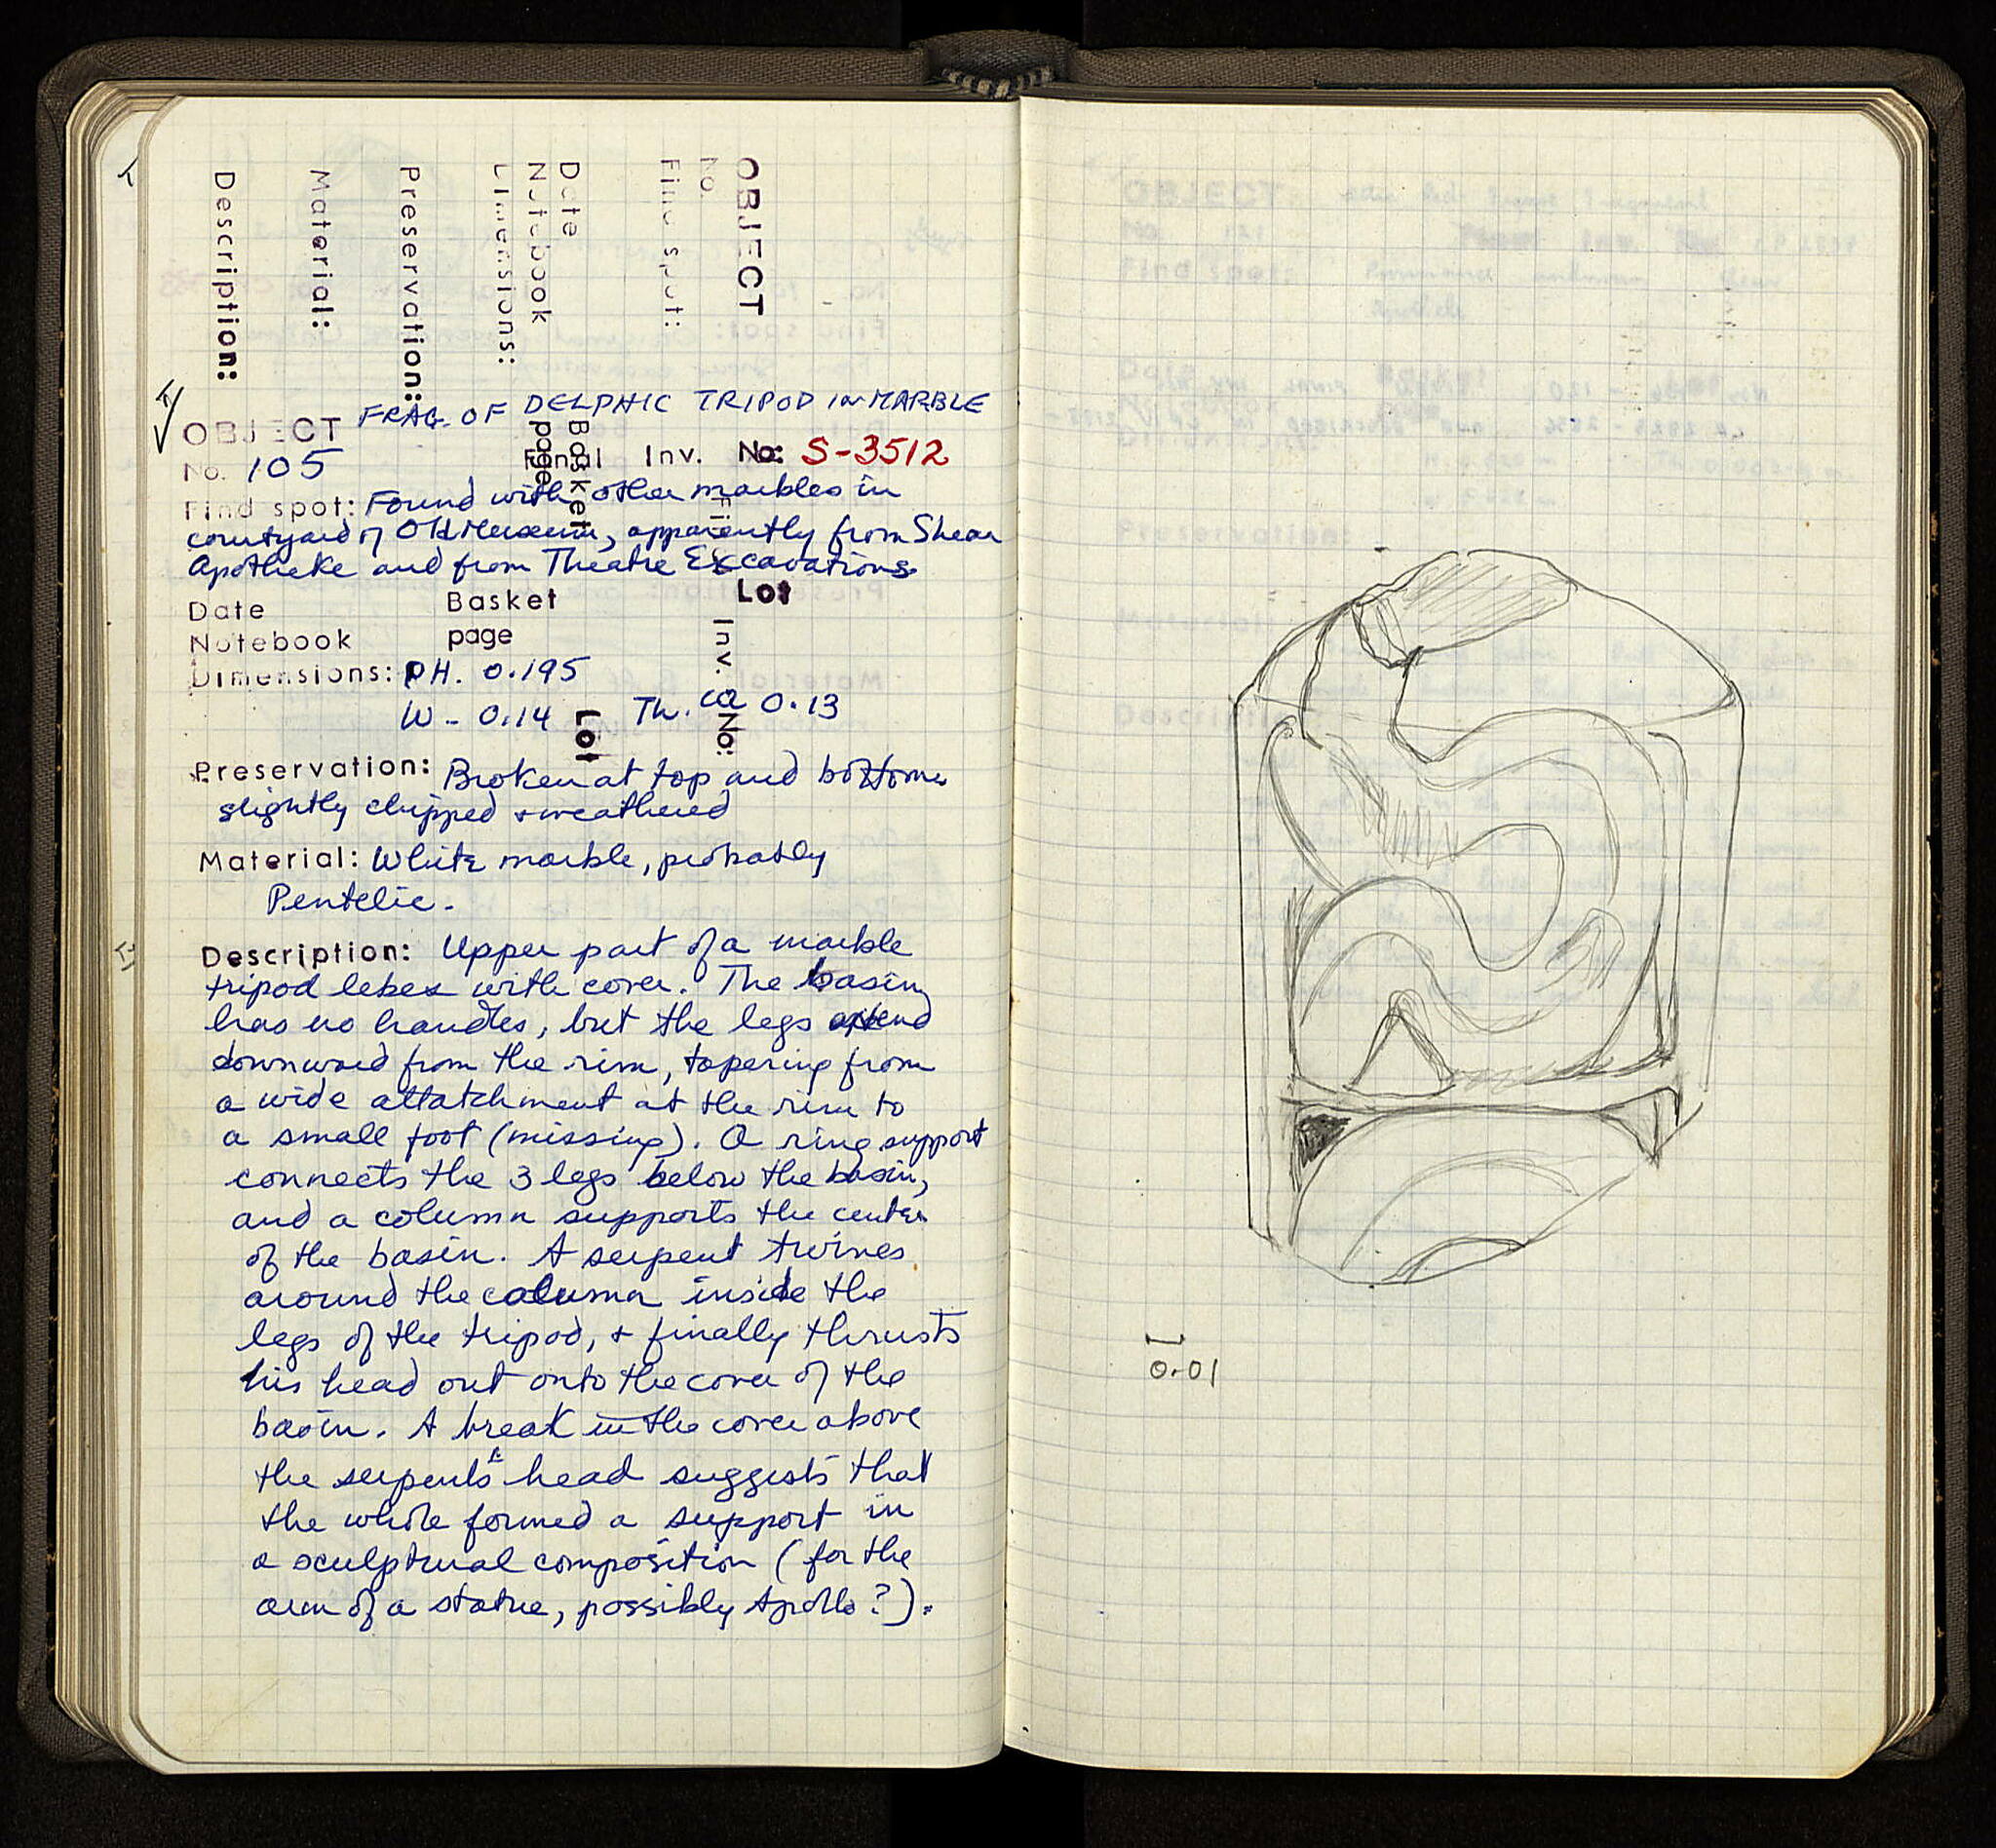 Description:
Material:
Preservation:
Dimensions:
Notebook page
Date Basket Lot
Find spot:
No. Final Inv. No:
OBJECT
OBJECT FRAG. OF DELPHIC TRIPOD in MARBLE
No. 105 Final Inv. No: S-3512
Find spot: Found with other marbles in
courtyard of Old Museum, apparently from Shear
Apotheke and from Theatre Excavations
Date Basket Lot
Notebook page
Dimensions: PH. 0.195
W - 0.14 Th. ca 0.13
Preservation: Broken at top and bottom
slightly chipped + weathered
Material: White marble, probably
Pentelic.
Description: Upper part of a marble
tripod lebes with cover. The basin
has no handles, but the legs extend
downward from the rim, tapering from
a wide attatchment at the rim to
a small foot (missing). A ring support
connects the 3 legs below the basin,
and a column supports the center
of the basin. A serpent twines
around the column inside the
legs of the tripod, + finally thrusts
his head out onto the cover of the
basin. A break in the cover above
the serpent's head suggests that
the whole formed a support in
a sculptural composition (for the
arm of a statue, possibly Apollo?).
0.01